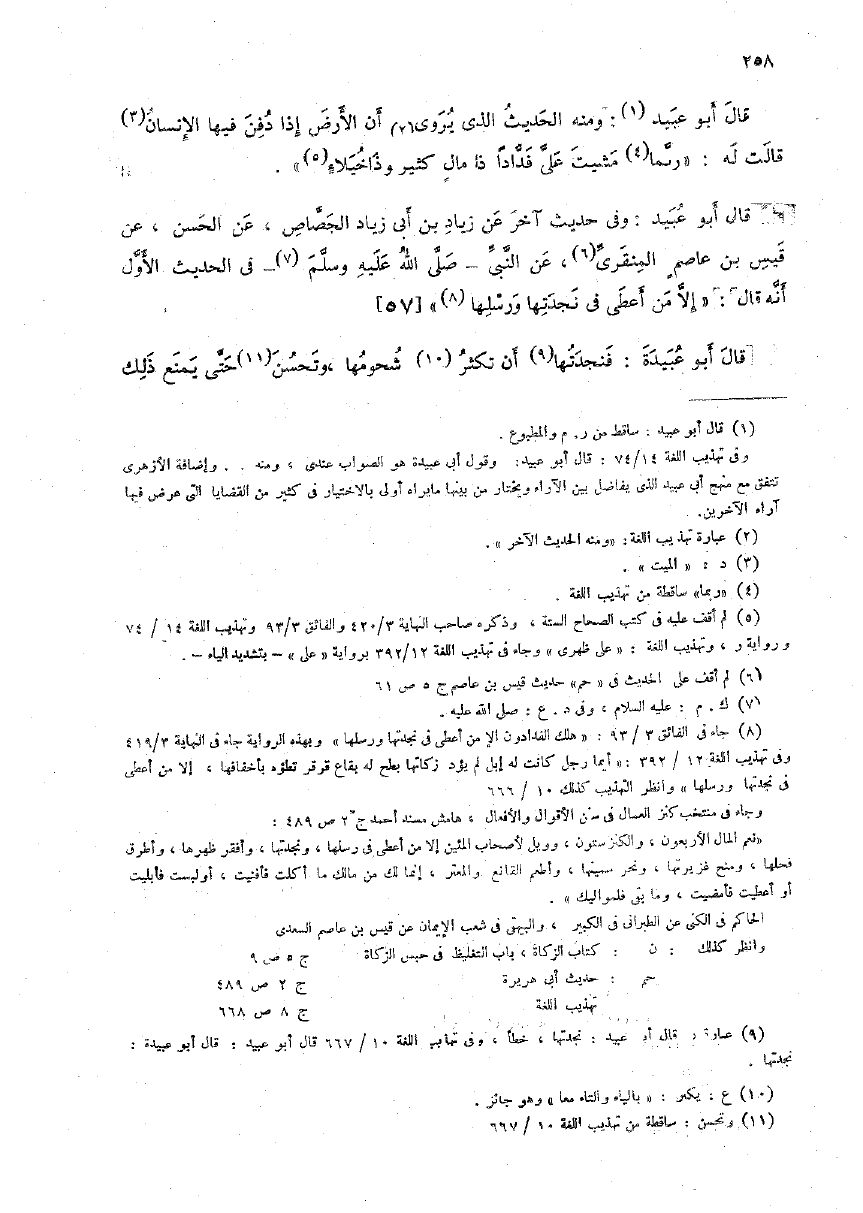 ٢٥٨
قالَ أَبو عبَيد (١) : ومنه الحَديثُ الذى يُرَوى(٢) أَن الأَرضَ إِذا دُفِنَ فيها الإِنسانُ(٣)
قالَت لَه : «ربَّما(٤) مَشيتَ عَلىَّ فَدَّاداً ذا مالٍ كثير وذَاخُيَلاءٍ(٥)» .
قال أَبو عُبَيد : وفى حديث آخرَ عَن زيادِ بن أَبى زياد الجَصَّاصِ ، عَن الحَسن ، عن
قَيسِ بن عاصمٍ المِنقَرىِّ(٦) ، عَن النَّبىِّ – صَلَّى اللهُ عَلَيهِ وسلَّمَ (٧) – فى الحديث الأَوَّل
أَنَّه قال : « إِلاَّ مَن أَعطَى فى نَجدَتِها وَرَسْلِها (٨) » [٥٧]
قالَ أَبو عُبَيدَةَ : فَنجدَتُها(٩) أَن تكثرُ (١٠) شُحومُها ،وتَحسُنَ(١١)حَتَّى يَمنَع ذَلِك
(١) قال أبو عبيد : ساقط من ر. م والمطبوع .
وفى تهذيب اللغة ٧٤/١٤ : قال أبو عبيد: وقول أبى عبيدة هو الصواب عندى ، ومنه . . وإضافة الأزهرى
تتفق مع منهج أبى عبيد الذى يفاضل بين الآراء ويختار من بينها مايراه أولى بالاختيار فى كثير من القضايا التى عرض فيها
آراء الآخرين.
(٢) عبارة تهذيب اللغة: «ومنه الحديث الآخر » .
(٣) د : « الميت » .
(٤) «ربما» ساقطة من تهذيب اللغة .
(٥) لم أقف عليه فى كتب الصحاح الستة ، وذكره صاحب النهاية ٤٢٠/٣ والفائق ٩٣/٣ وتهذيب اللغة ١٤ / ٧٤
ورواية ر ، وتهذيب اللغة : « على ظهرى » وجاء فى تهذيب اللغة ٣٩٢/١٢ برواية « على » – بتشديد الياء – .
(٦) لم أقف على الحديث فى « حم» حديث قيس بن عاصم ج ٥ ص ٦١
(٧) ك . م : عليه السلام ، وفى د . ع : صلى الله عليه .
(٨) جاء فى الفائق ٣ / ٩٣ : « هلك الفدادون إلا من أعطى فى نجدتها ورسلها » وبهذه الرواية جاء فى النهاية ٤١٩/٣
وفى تهذيب اللغة ١٢ / ٣٩٢ : « أيما رجل كانت له إبل لم يؤد زكاتها بطح له بقاع قرقر تطؤه بأخفافها ، إلا من أعطى
فى نجدتها ورسلها » وانظر التهذيب كذلك ١٠ / ٦٦٦
وجاء فى منتخب كنز العمال فى سنن الأقوال والأفعال ، هامش مسند أحمد ج ٢ ص ٤٨٩ :
«نعم المال الأربعون ، والكنز ستون ، وويل لأصحاب المئين إلا من أعطى فى رسلها ، ونجدتها ، وأفقر ظهرها ، وأطرق
فحلها ، ومنح غزيرتها ، ونحر سمينها ، وأطعم القانع والمعتر ، إنما لك من مالك ما أكلت فأفنيت ، أولبست فأبليت
أو أعطيت فأمضيت ، وما بقى فلمواليك » .
الحاكم فى الكنى عن الطبرانى فى الكبير ، والبيهقى فى شعب الإيمان عن قيس بن عاصم السعدى
وانظر كذلك : ن : كتاب الزكاة ، باب التغليظ فى حبس الزكاة ج ٥ ص ٩
حم : حديث أبى هريرة ج ٢ ص ٤٨٩
تهذيب اللغة ج ٨ ص ٦٦٨
(٩) عبارة د قال أبو عبيد : نجدتها ، خطأ ، وفى تهذيب اللغة ١٠ / ٦٦٧ قال أبو عبيد : قال أبو عبيدة :
نجدتها .
(١٠) ع : يكثر : « بالياء والتاء معا » وهو جائز .
(١١) وتحسن : ساقطة من تهذيب اللغة ١٠ / ٦٩٧